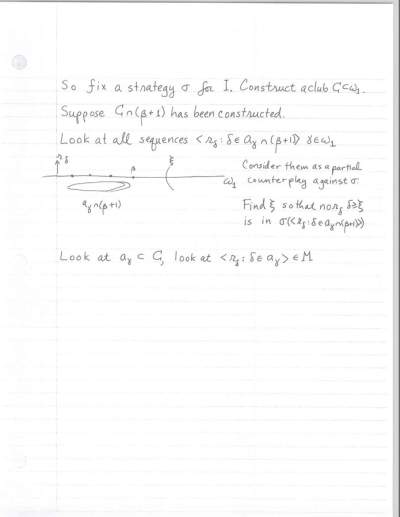 So fix a strategy σ for I. Construct a club C⊂ω₁.
Suppose C∩(β+1) has been constructed.
Look at all sequences <r_δ : δ∈ a_γ ∩(β+1)> γ∈ω₁
r_δ
β
ξ
ω₁
a_γ∩(β+1)
Consider them as a partial
counterplay against σ.
Find ξ so that no r_δ δ≥ξ
is in σ(<r_δ : δ∈a_γ∩(β+1)>)
Look at a_γ ⊂ C, look at <r_δ : δ∈ a_γ> ∈ M